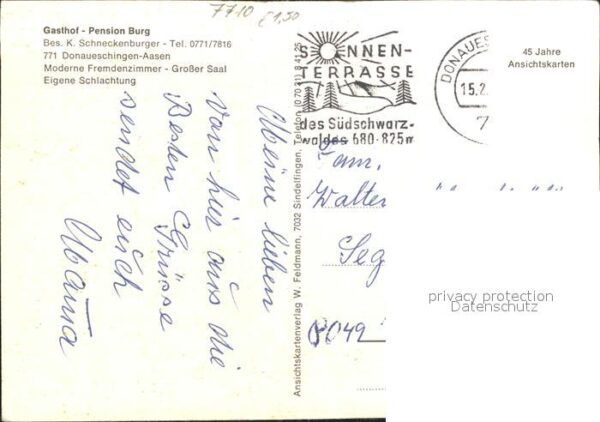 7710 £1,50
Gasthof - Pension Burg
Bes. K. Schneckenburger - Tel. 0771/7816
771 Donaueschingen-Aasen
Moderne Fremdenzimmer - Großer Saal
Eigene Schlachtung
Meine lieben
von hier aus die
Besten Grüsse
sendet euch
Mama
Ansichtskartenverlag W. Feldmann, 7032 Sindelfingen, Telefon (07031) 8 41 25
SONNEN-
TERRASSE
des Südschwarz-
waldes 680-825m
DONAUES
15.2.
7
45 Jahre
Ansichtskarten
Fam.
Walter
Seg
8049
privacy protection
Datenschutz